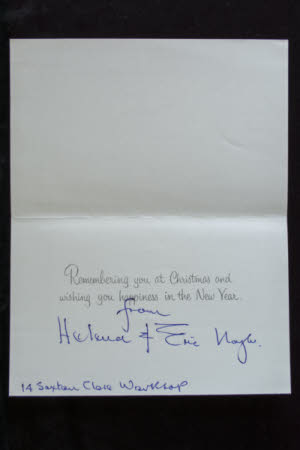 Remembering you at Christmas and
wishing you happiness in the New Year.
from
Helena & Eric
14 Saxton Close Worksop